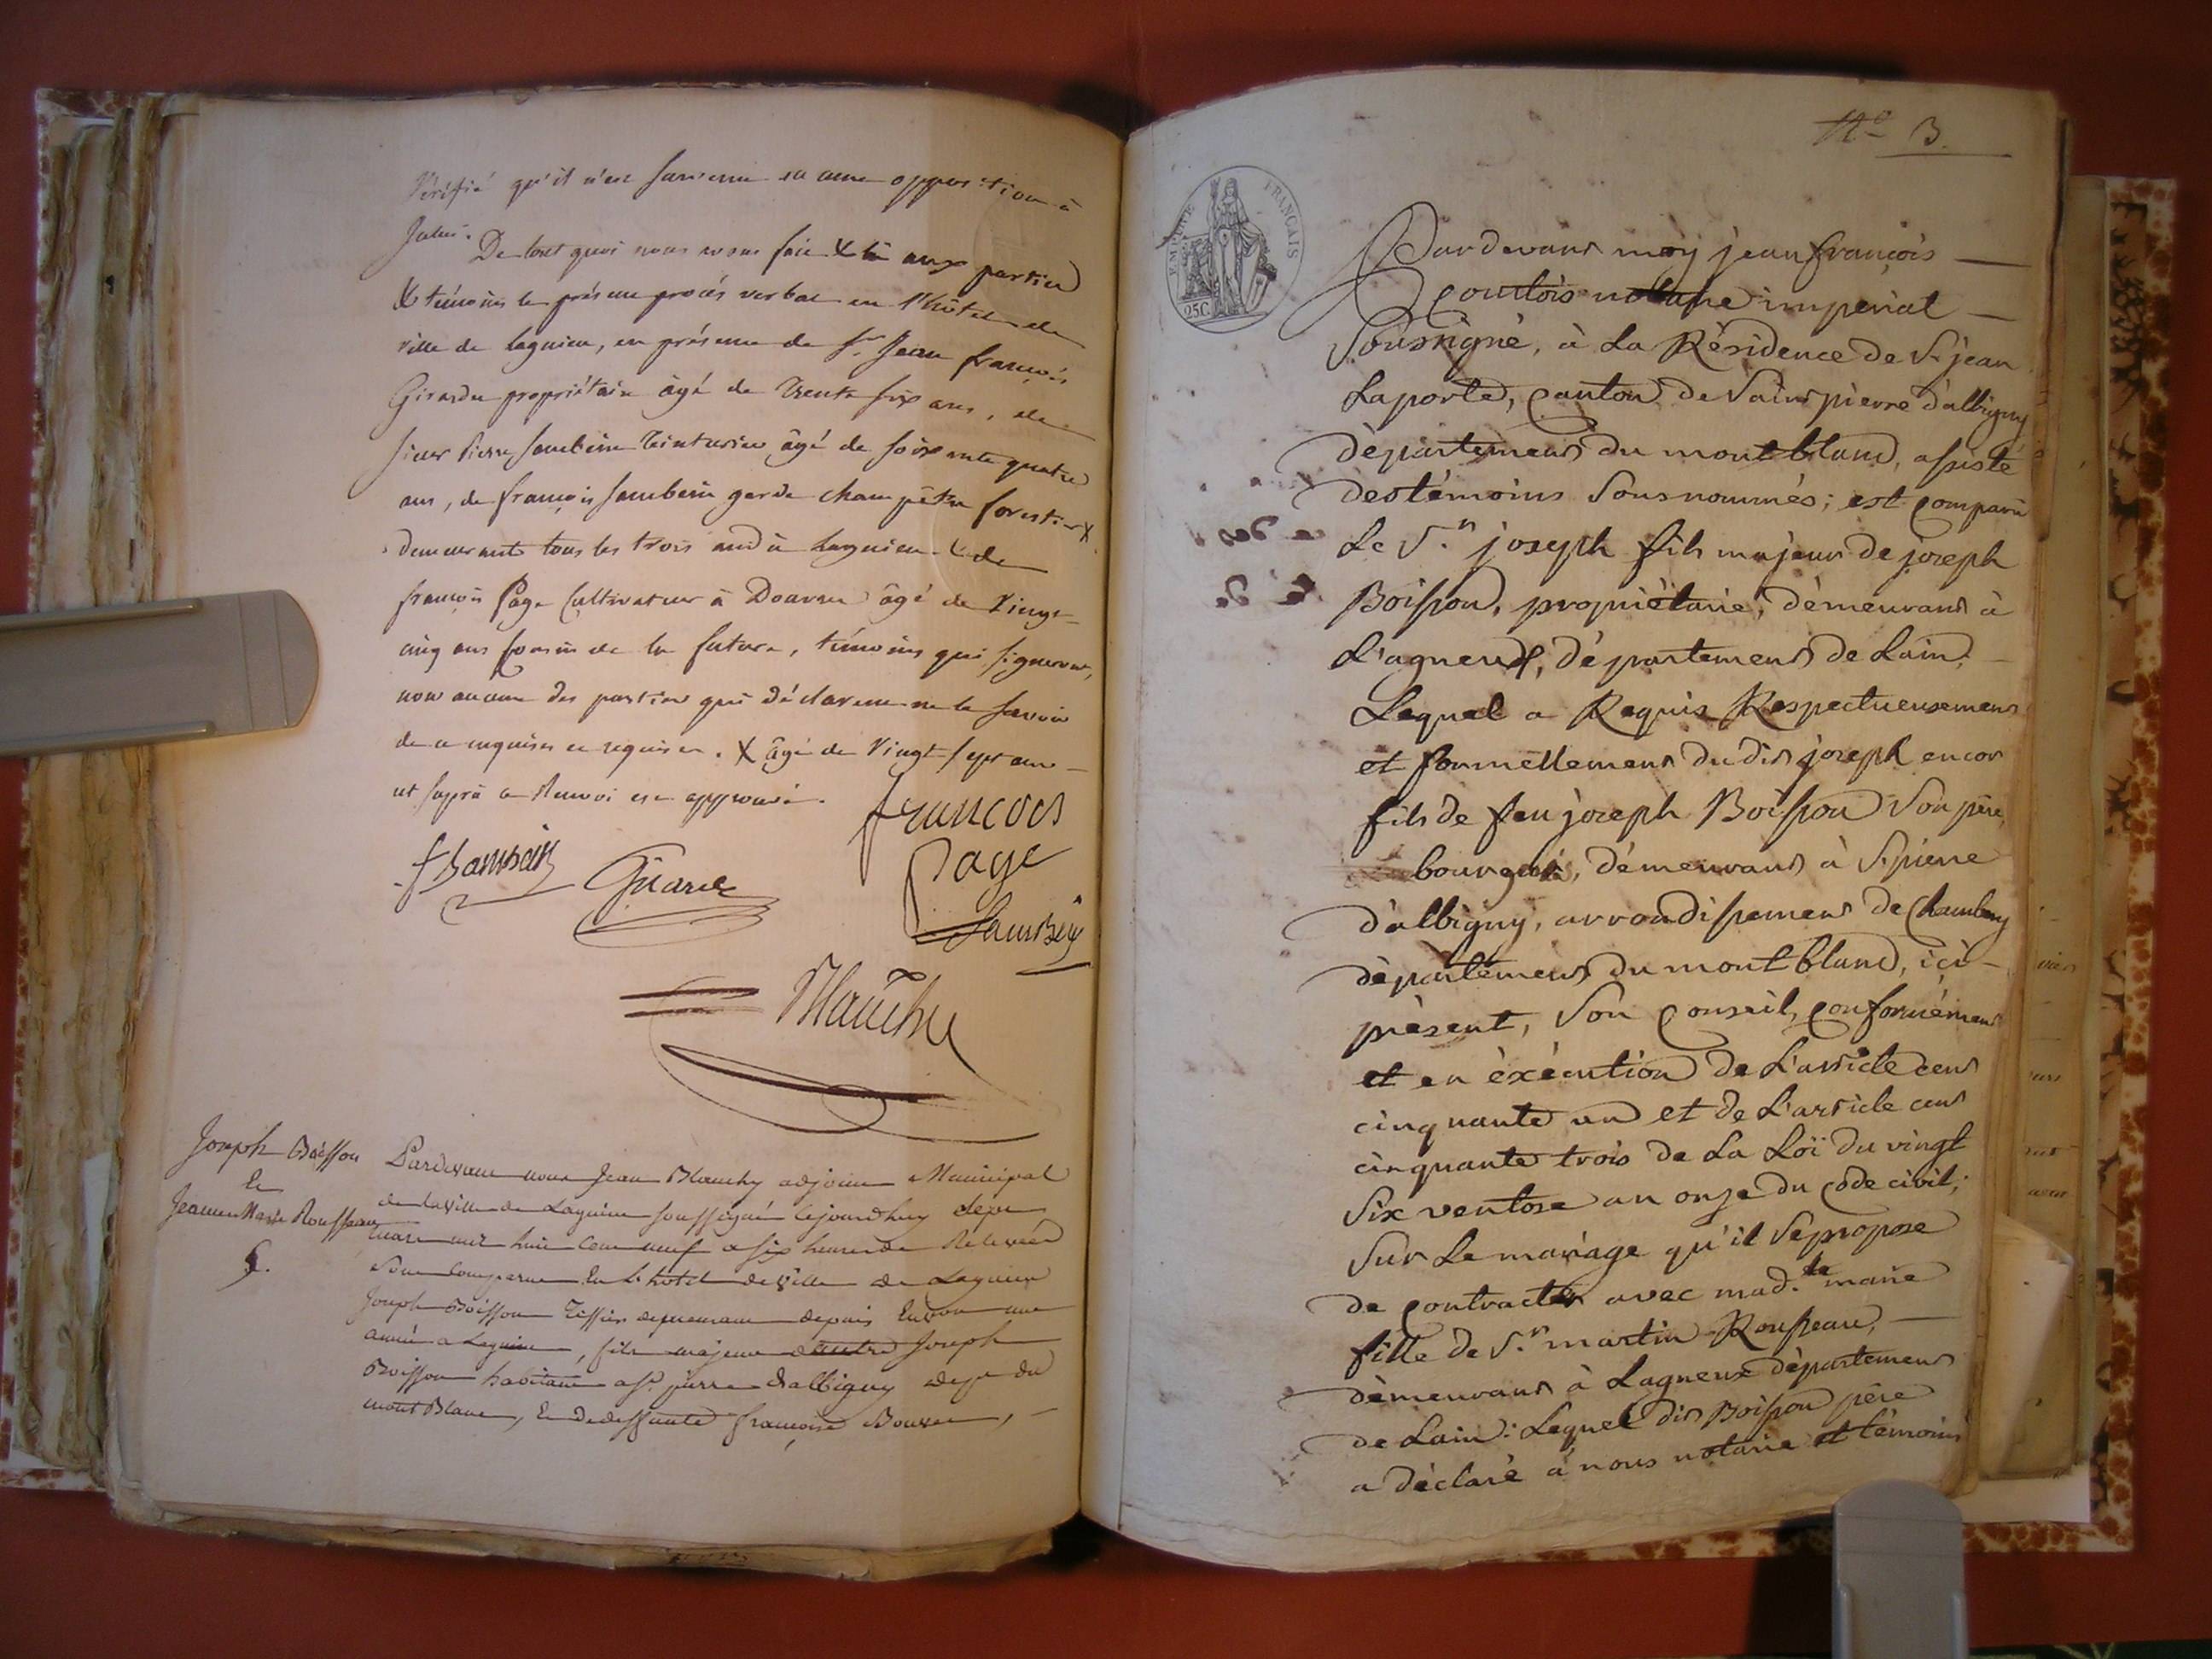 Vérifié qu'il n'est survenu aucune opposition à
De tout quoi nous avons fait & lu aux parties
& témoins le présent procès verbal en l'hôtel de
ville de lagnieu, en présence de Sr. Jean françois
propriétaire âgé de trente six ans, de
sieur Pierre teinturier âgé de soixante quatre
ans, de françois garde champêtre forestier X
demeurants tous les trois audit Lagnieu & de
françois Page Cultivateur à Douvres âgé de Vingt
cinq ans cousin de la future, témoins qui signeront,
non aucune des parties qui déclarent ne le savoir
de ce enquises et requises. X âgé de Vingt sept ans
ut suprà ce Renvoi est approuvé.
françois
page
Joseph Boisson
et
Jeanne Marie Rousseau
6.
Pardevant nous Jean Blanchy adjoint Municipal
de la Ville de Lagnieu soussigné cejourdhuy
mars mil huit cent neuf a six heures de Relevée
Sont comparus En l'hotel de Ville de Lagnieu
Joseph Boisson Tissier demeurant depuis Environ une
année a Lagnieu, fils majeur d'autre Joseph
Boisson habitant a St. pierre dalbigny dept. du
mont Blanc, & De deffunte françoise
No. 3.
EMPIRE FRANÇAIS
25C.
Pardevant moy jean françois
courtois notaire impérial
Soussigné, à La Résidence de St. jean
Laporte, canton de Saint pierre d'albigny
département du mont blanc, assisté
des témoins Sousnommés; est comparu
Le Sr. joseph fils majeur de joseph
Boisson, propriétaire, démeurant à
L'agneux, département de Lain,
Lequel a Requis Respectueusement
et formellement dudit joseph encor
fils de feu joseph Boisson Son père,
bourgeois, démeurant à St. pierre
d'albigny, arrondissement de Chambery
département du mont blanc, içi
présent, Son conseil, conformément
et en éxécution de L'article cent
cinquante un et de L'article cent
cinquante trois de La Loi du vingt
Six ventose an onze du code civil;
Sur Le mariage qu'il Se propose
de contracter avec mad.le marie
fille de Sr. martin Rousseau,
démeurant à Lagneux département
de Lain: Lequel dit Boisson père
a déclaré à nous notaire et témoins